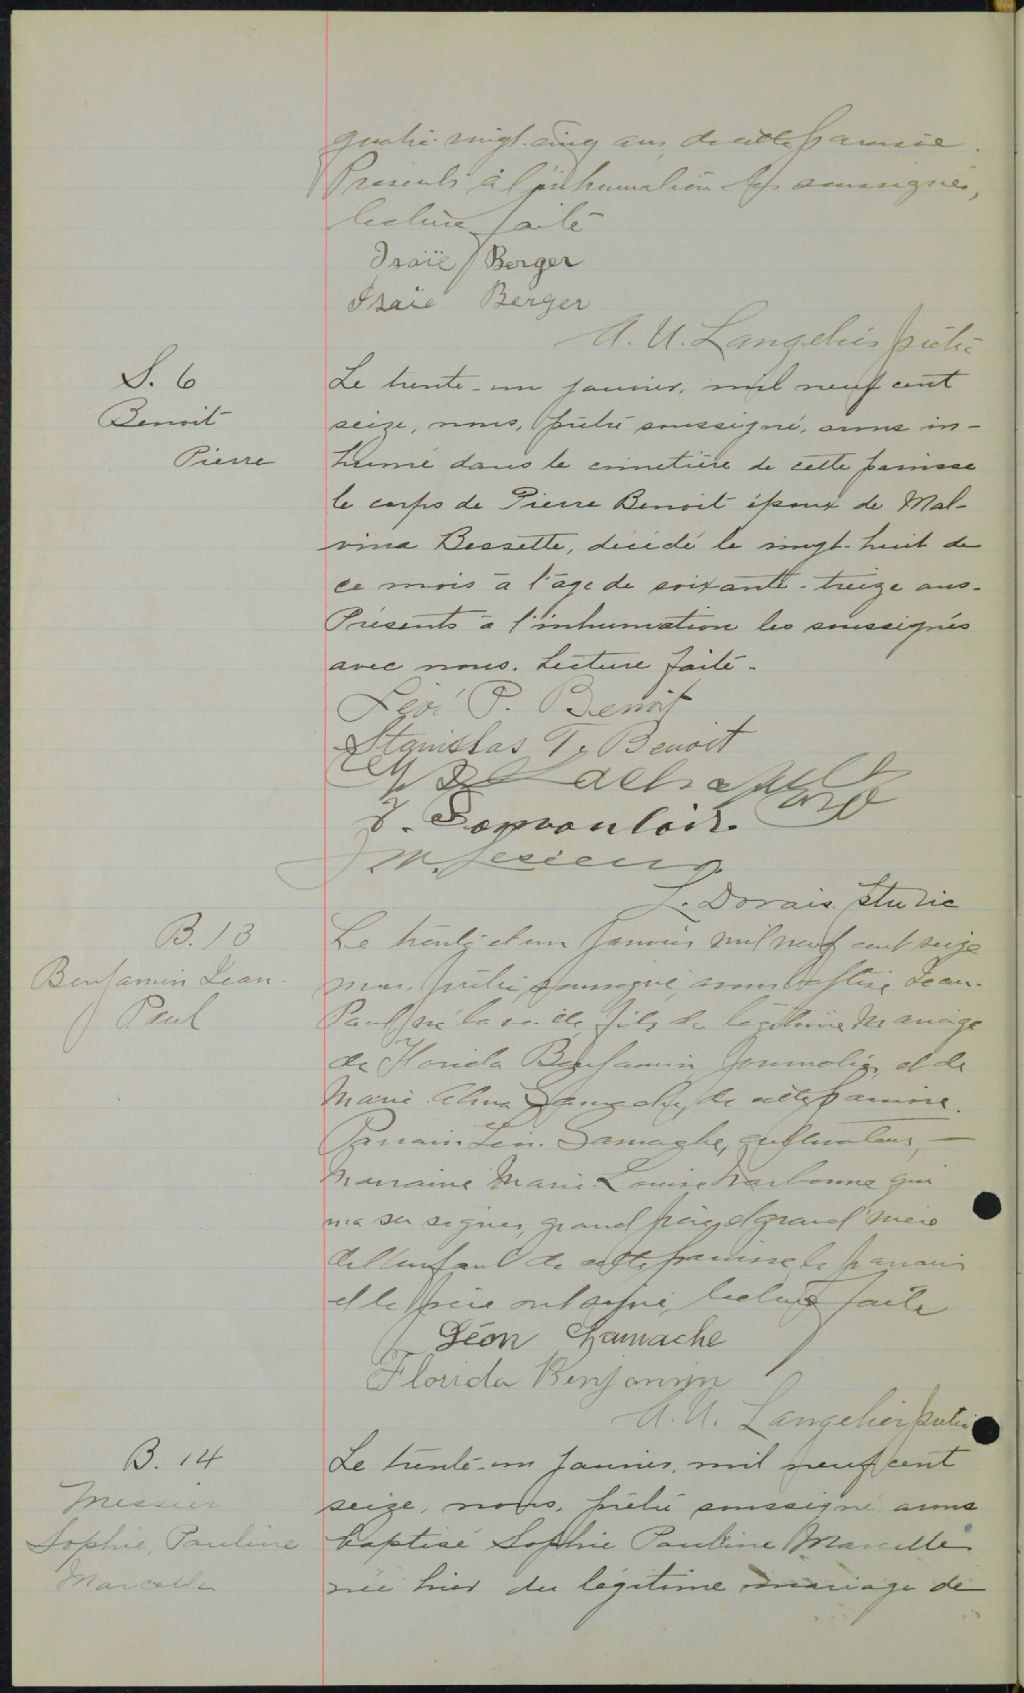 quatre-vingt-cinq ans, de cette paroisse.
Présents à l'inhumation les soussignés,
lecture faite
Isaïe Berger
Isaïe Berger
A. U. Langelier ptre
S. 6
Benoit
Pierre
Le trente-un janvier, mil neuf cent
seize, nous, prêtre soussigné, avons in-
humé dans le cimetière de cette paroisse
le corps de Pierre Benoit époux de Mal-
vina Bessette, décédé le vingt-huit de
ce mois à l'âge de soixante-treize ans.
Présents à l'inhumation les soussignés
avec nous. Lecture faite.
P. Benoit
Stanislas T. Benoit
L. Dorais ptre vic
B. 13
Benjamin Jean-
Paul
Le trente et un janvier mil neuf cent seize
nous, prêtre soussigné, avons baptisé Jean-
Paul, né la veille, fils du légitime mariage
de Florida Benjamin, journalier, et de
Marie Alma Gamache de cette paroisse.
Parrain Léon Gamache, cultivateur, —
Marraine Marie-Louise Narbonne qui
n'a su signer, grand père et grand'mère
de l'enfant de cette paroisse, le parrain
et le père ont signé, lecture faite
Léon Gamache
Florida Benjamin
A. U. Langelier ptre
B. 14
Messier
Sophie Pauline
Marcelle
Le trente-un janvier, mil neuf cent
seize, nous, prêtre soussigné avons
baptisé Sophie Pauline Marcelle
née hier du légitime mariage de